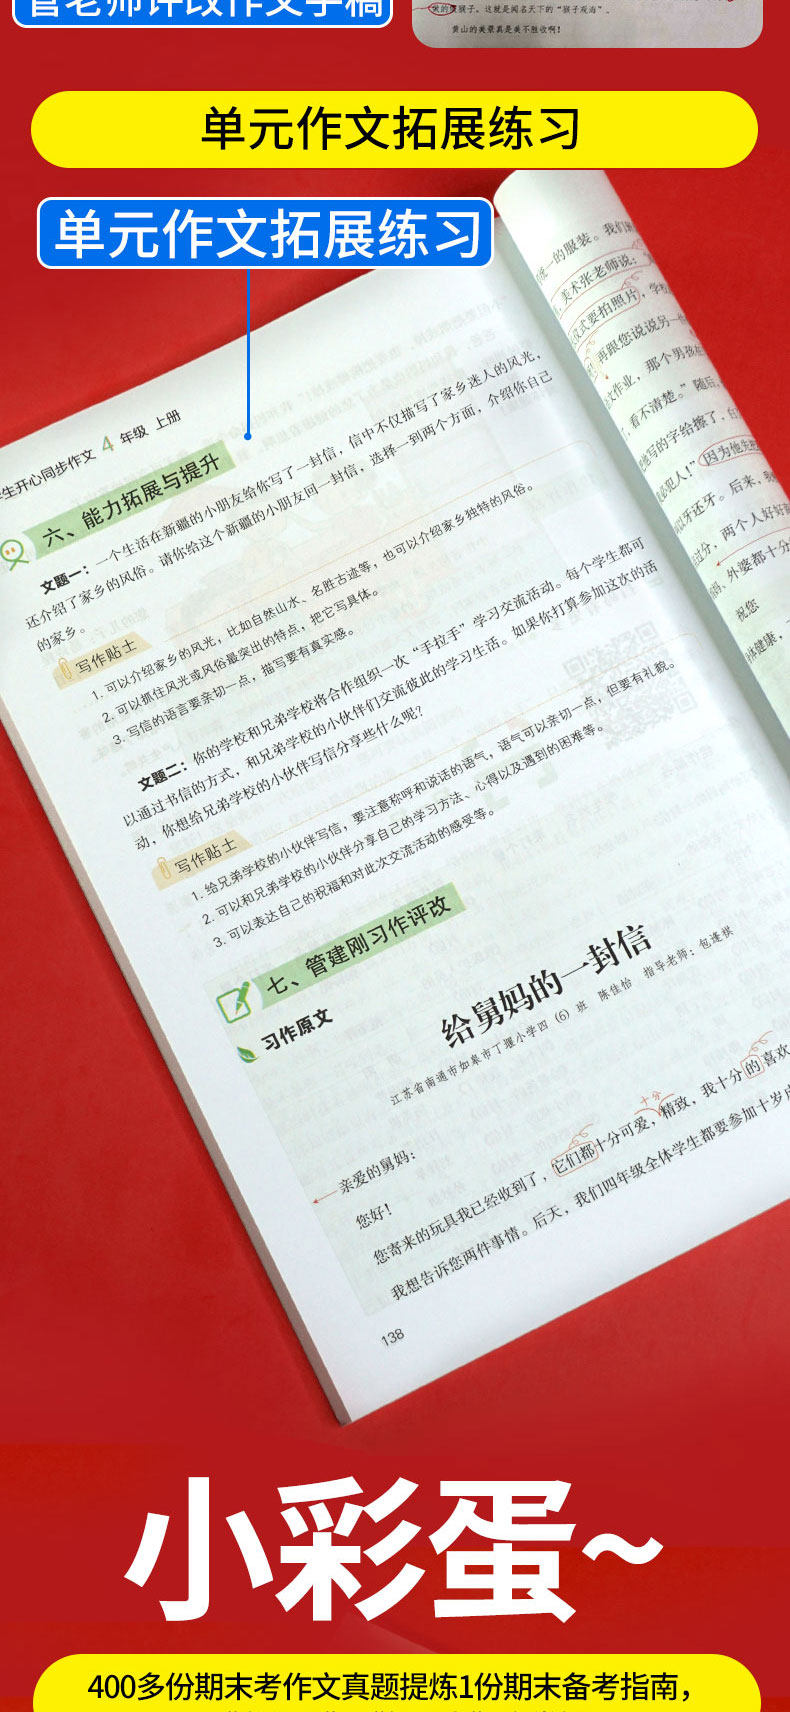 管老师评改作文手稿
猴子。这就是闻名天下的“猴子观海”。
黄山的美景真是美不胜收啊！
单元作文拓展练习
单元作文拓展练习
生开心同步作文 4 年级 上册
六、能力拓展与提升
文题一：一个生活在新疆的小朋友给你写了一封信，信中不仅描写了家乡迷人的风光，
还介绍了家乡的风俗。请你给这个新疆的小朋友回一封信，选择一到两个方面，介绍你自己
的家乡。
写作贴士
1. 可以介绍家乡的风光，比如自然山水、名胜古迹等，也可以介绍家乡独特的风俗。
2. 可以抓住风光或风俗最突出的特点，把它写具体。
3. 写信的语言要亲切一点，描写要有真实感。
文题二：你的学校和兄弟学校将合作组织一次“手拉手”学习交流活动。每个学生都可
以通过书信的方式，和兄弟学校的小伙伴们交流彼此的学习生活。如果你打算参加这次的活
动，你想给兄弟学校的小伙伴写信分享些什么呢？
写作贴士
1. 给兄弟学校的小伙伴写信，要注意称呼和说话的语气，语气可以亲切一点，但要有礼貌。
2. 可以和兄弟学校的小伙伴分享自己的学习方法、心得以及遇到的困难等。
3. 可以表达自己的祝福和对此次交流活动的感受等。
七、管建刚习作评改
习作原文
给舅妈的一封信
江苏省南通市如皋市丁堰小学四（6）班 陈佳怡 指导老师：包逢祺
亲爱的舅妈：
您好！
十分
您寄来的玩具我已经收到了，它们都十分可爱，精致，我十分的喜欢
我想告诉您两件事情。后天，我们四年级全体学生都要参加十岁成
138
一的服装。我们
美术张老师说：
仪式要拍照片，学
再跟您说说另一
作业，那个男孩
看不清楚。”随后，
他写的字给擦了，
犯人！”因为他先
以牙还牙。后来，
过分，两个人好好
外婆都十分
祝您
健康，
小彩蛋~
400多份期末考作文真题提炼1份期末备考指南，